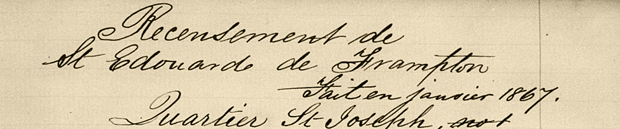 Recensement de
St Edouard de Frampton
Fait en janvier 1867.
Quartier St Joseph,